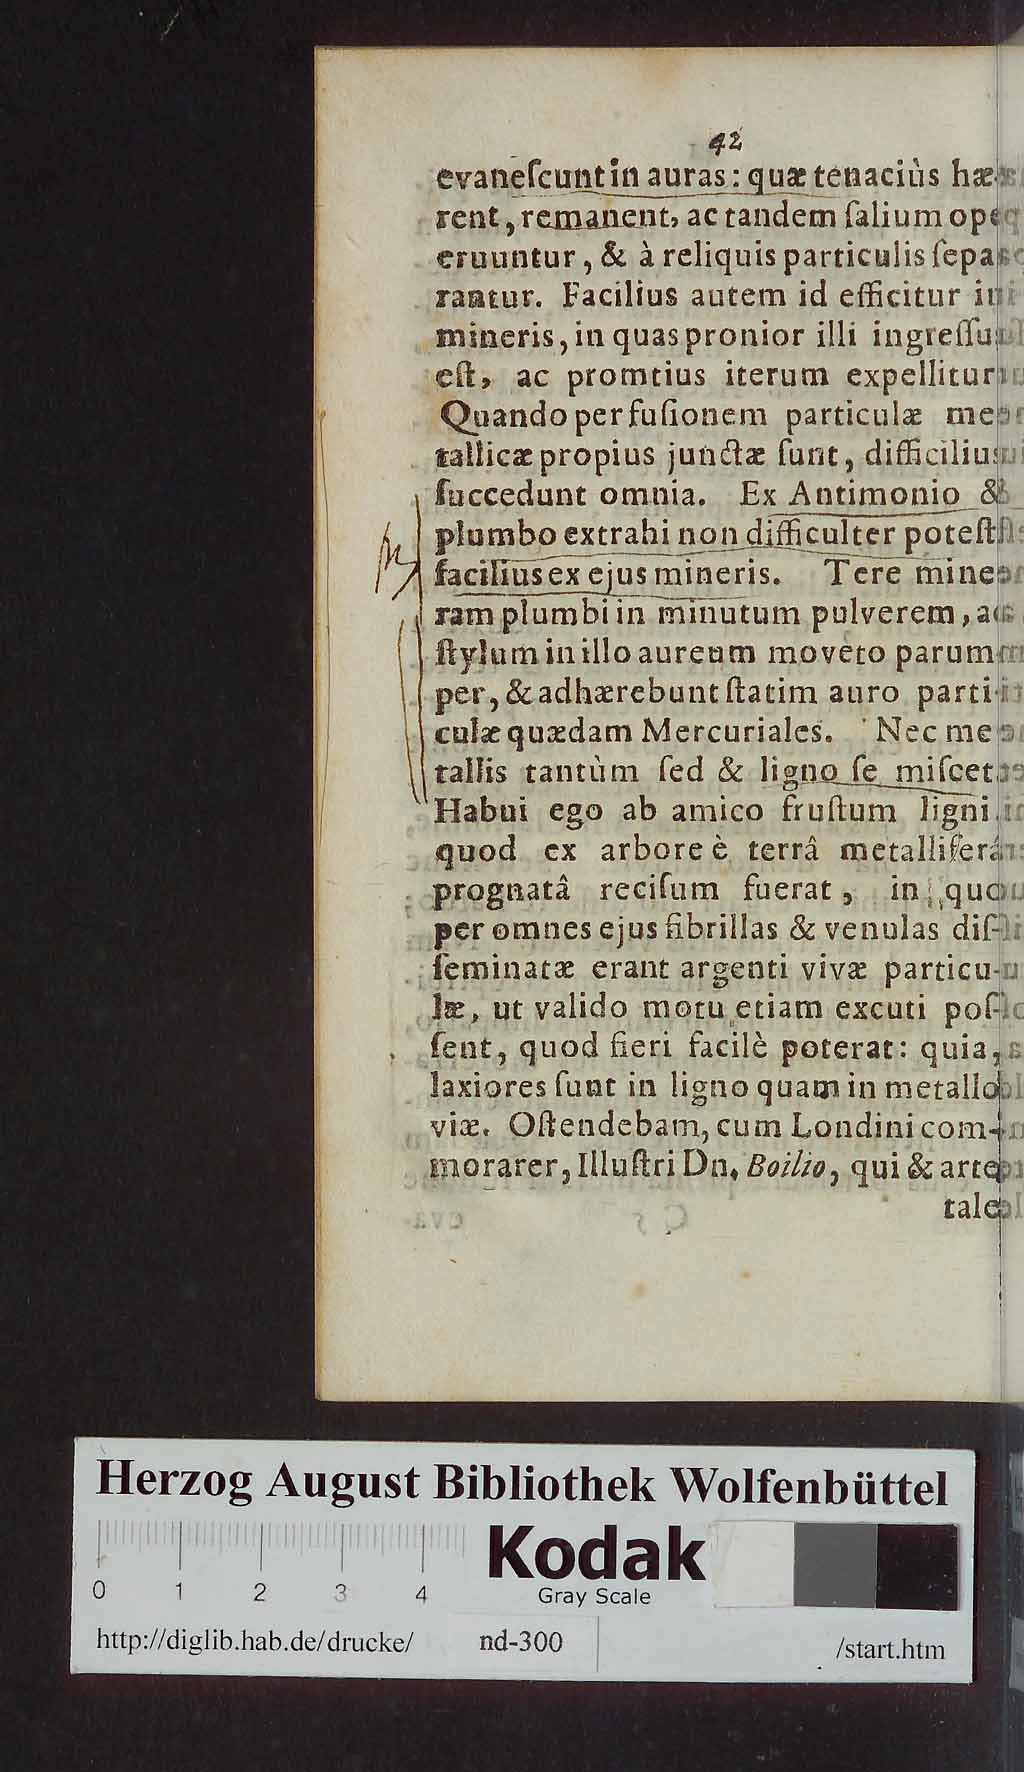 42
evaneſcunt in auras: quæ tenaciùs hæ-
rent, remanent, ac tandem ſalium ope
eruuntur, & à reliquis particulis ſepa-
rantur. Facilius autem id efficitur in
mineris, in quas pronior illi ingreſſus
eſt, ac promtius iterum expellitur
Quando per fuſionem particulæ me-
tallicæ propius junctæ ſunt, difficilius
ſuccedunt omnia. Ex Antimonio &
plumbo extrahi non difficulter poteſt
facilius ex ejus mineris. Tere mine-
ram plumbi in minutum pulverem, ac
ſtylum in illo aureum moveto parum
per, & adhærebunt ſtatim auro parti-
culæ quædam Mercuriales. Nec me-
tallis tantùm ſed & ligno ſe miſcet.
Habui ego ab amico fruſtum ligni
quod ex arbore è terrâ metalliferâ
prognatâ reciſum fuerat, in quo
per omnes ejus fibrillas & venulas diſ-
ſeminatæ erant argenti vivæ particu-
læ, ut valido motu etiam excuti poſ-
ſent, quod fieri facilè poterat: quia,
laxiores ſunt in ligno quam in metallo
viæ. Oſtendebam, cum Londini com-
morarer, Illuſtri Dn. Boilio, qui & arte
tale
Herzog August Bibliothek Wolfenbüttel
Kodak
Gray Scale
0 1 2 3 4
http://diglib.hab.de/drucke/ nd-300 /start.htm